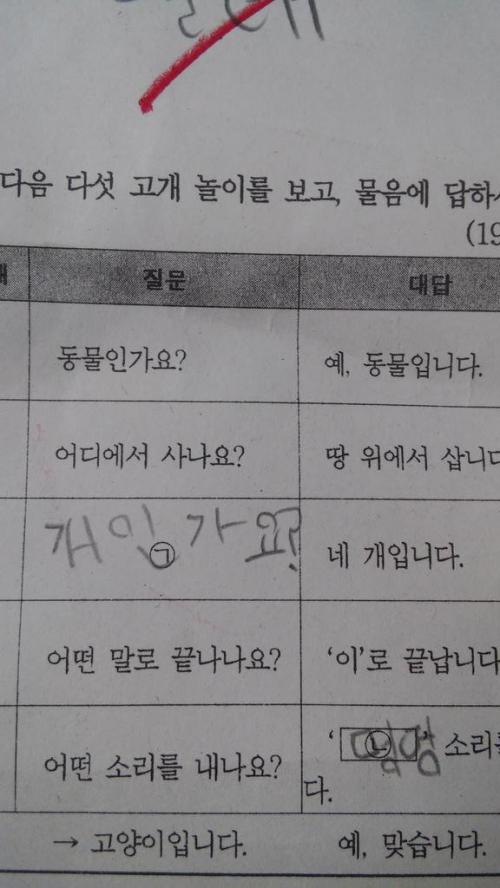 다음 다섯 고개 놀이를 보고, 물음에 답하
(19
질문 대답
동물인가요? 예, 동물입니다.
어디에서 사나요? 땅 위에서 삽니다
개인가요? ㉠ 네 개입니다.
어떤 말로 끝나나요? ‘이’로 끝납니다
어떤 소리를 내나요? ‘ ㉡ ’ 소리를
다.
→ 고양이입니다. 예, 맞습니다.